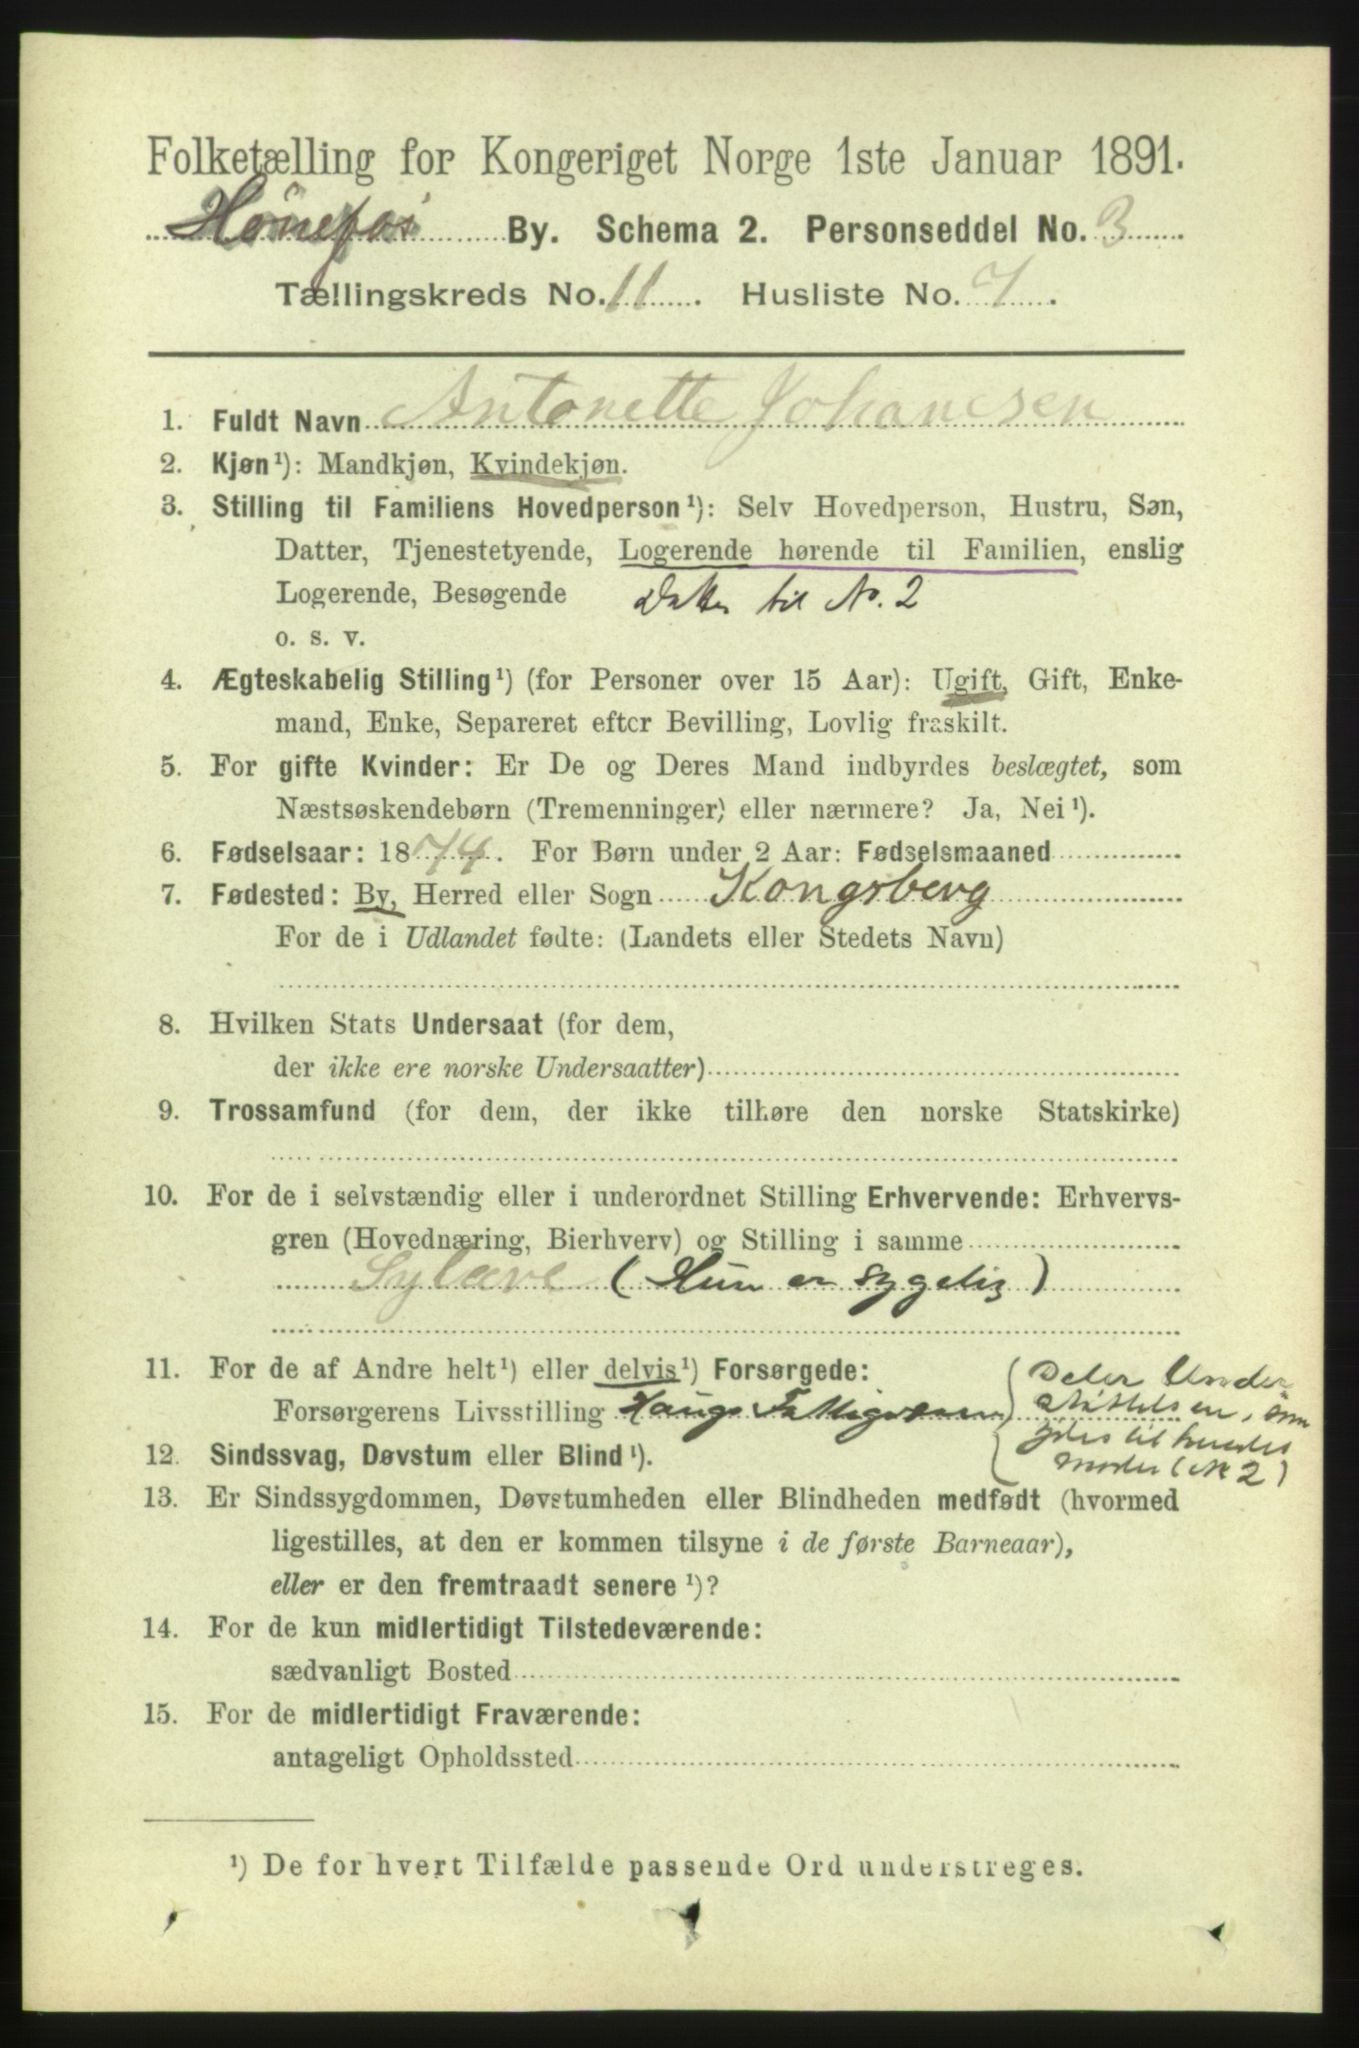 Folketælling for Kongeriget Norge 1ste Januar 1891.
Hönefos By. Schema 2. Personseddel No. 3
Tællingskreds No. 11. Husliste No. 7.
1. Fuldt Navn Antonette Johannesen
2. Kjøn¹): Mandkjøn, Kvindekjøn.
3. Stilling til Familiens Hovedperson¹): Selv Hovedperson, Hustru, Søn,
Datter, Tjenestetyende, Logerende hørende til Familien, enslig
Logerende, Besøgende Datter til No. 2
o. s. v.
4. Ægteskabelig Stilling¹) (for Personer over 15 Aar): Ugift, Gift, Enke-
mand, Enke, Separeret efter Bevilling, Lovlig fraskilt.
5. For gifte Kvinder: Er De og Deres Mand indbyrdes beslægtet, som
Næstsøskendebørn (Tremenninger) eller nærmere? Ja, Nei¹).
6. Fødselsaar: 1874. For Børn under 2 Aar: Fødselsmaaned
7. Fødested: By, Herred eller Sogn Kongsberg
For de i Udlandet fødte: (Landets eller Stedets Navn)
8. Hvilken Stats Undersaat (for dem,
der ikke ere norske Undersaatter)
9. Trossamfund (for dem, der ikke tilhøre den norske Statskirke)
10. For de i selvstændig eller i underordnet Stilling Erhvervende: Erhvervs-
gren (Hovednæring, Bierhverv) og Stilling i samme
Sylære (Hun er sygelig)
11. For de af Andre helt¹) eller delvis¹) Forsørgede:
Forsørgerens Livsstilling Haugs Fattigvæsen
Deler Under-
støttelsen, som
ydes til hendes
moder (No 2)
12. Sindssvag, Døvstum eller Blind¹).
13. Er Sindssygdommen, Døvstumheden eller Blindheden medfødt (hvormed
ligestilles, at den er kommen tilsyne i de første Barneaar),
eller er den fremtraadt senere¹)?
14. For de kun midlertidigt Tilstedeværende:
sædvanligt Bosted
15. For de midlertidigt Fraværende:
antageligt Opholdssted
¹) De for hvert Tilfælde passende Ord understreges.